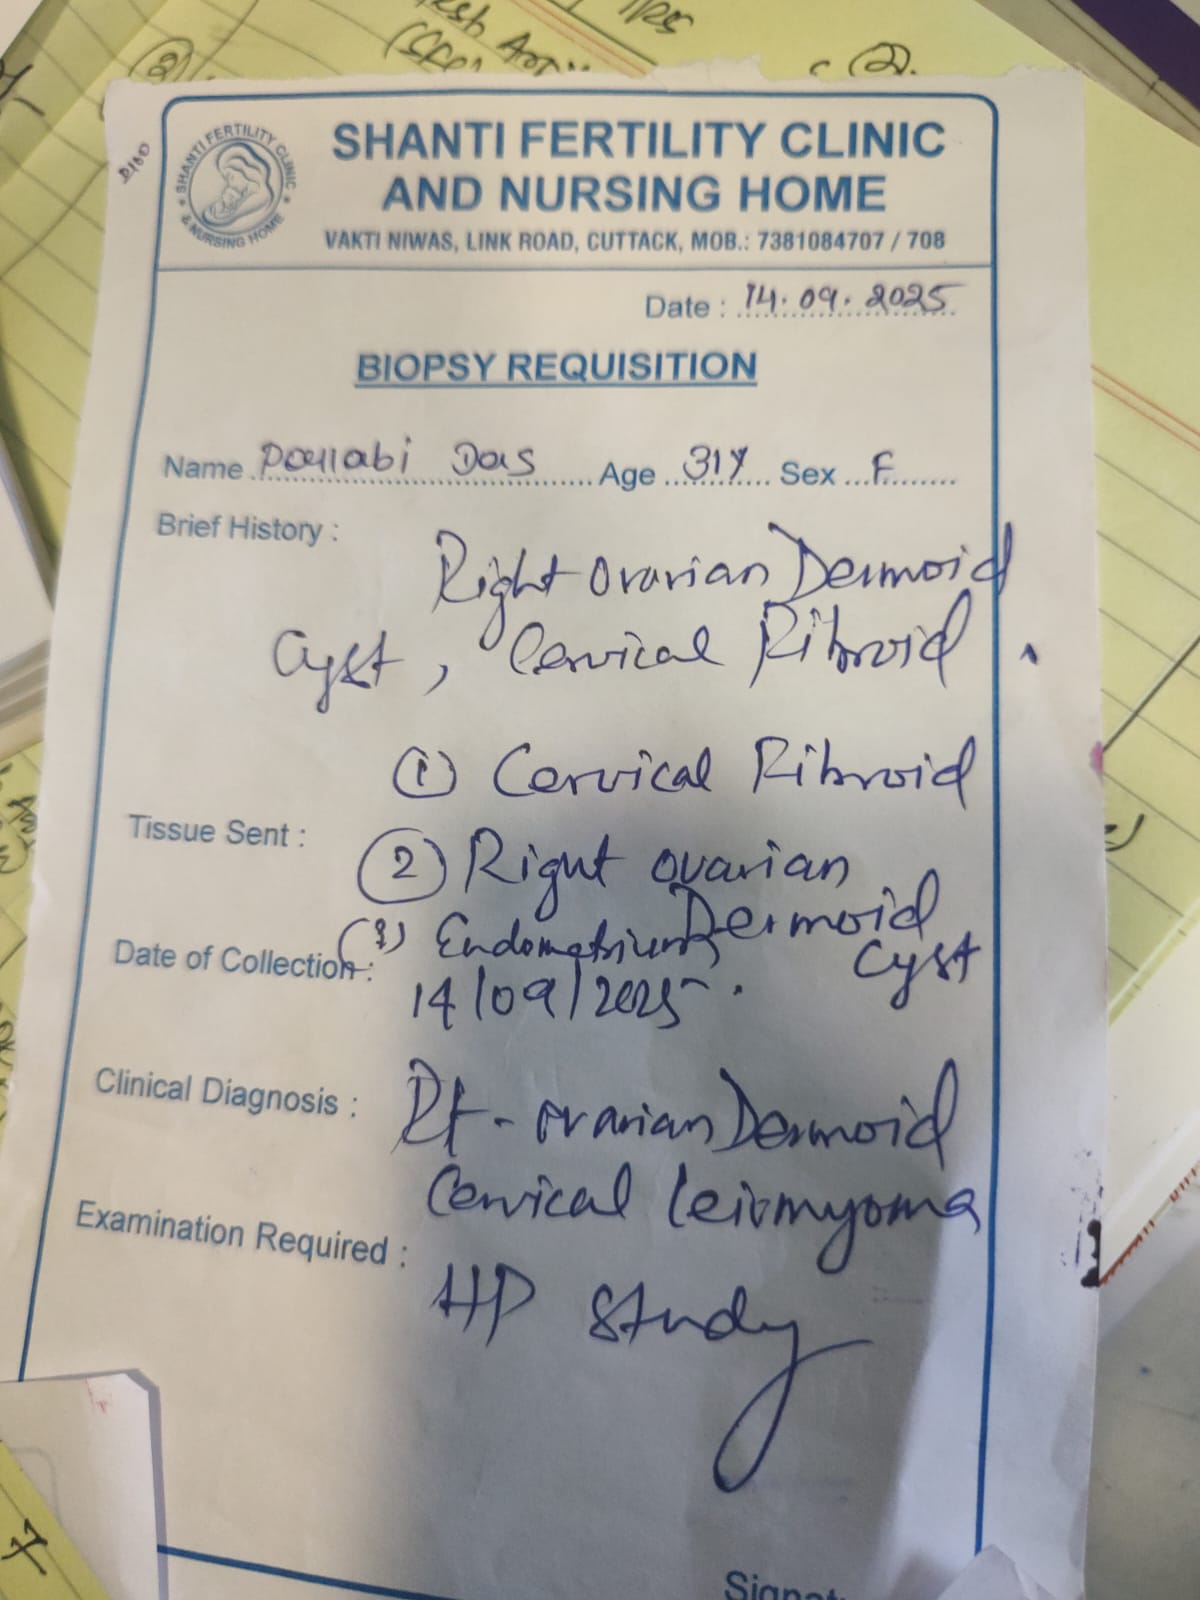 SHANTI FERTILITY CLINIC
& NURSING HOME
SHANTI FERTILITY CLINIC
AND NURSING HOME
VAKTI NIWAS, LINK ROAD, CUTTACK, MOB.: 7381084707 / 708
Date : 14.09.2025
BIOPSY REQUISITION
Name Pallabi Das Age 31Y Sex F
Brief History :
Right Ovarian Dermoid
Cyst, Cervical Fibroid.
① Cervical Fibroid
Tissue Sent :
② Right ovarian
Dermoid
Cyst
(3) Endometrium
Date of Collection :
14/09/2025.
Clinical Diagnosis : Rt- ovarian Dermoid
Cervical leiomyoma
Examination Required :
HP study